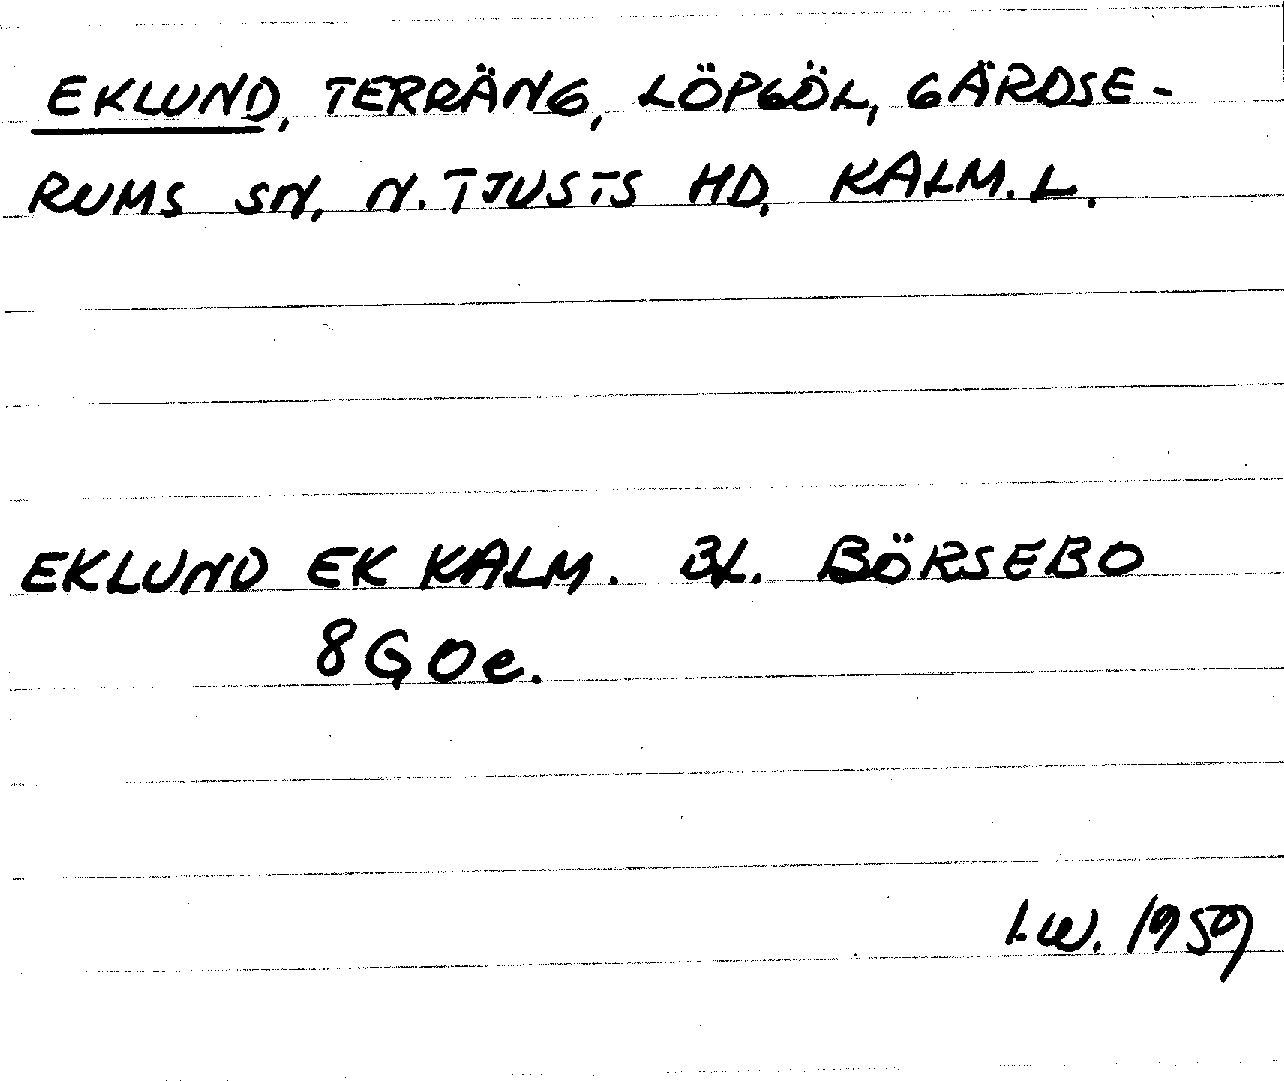 EKLUND, TERRÄNG, LÖPGÖL, GÄRDSE-
RUMS SN, N. TJUSTS HD, KALM. L.
EKLUND EK KALM. BL. BÖRSEBO
8G0e.
I.W. 1959